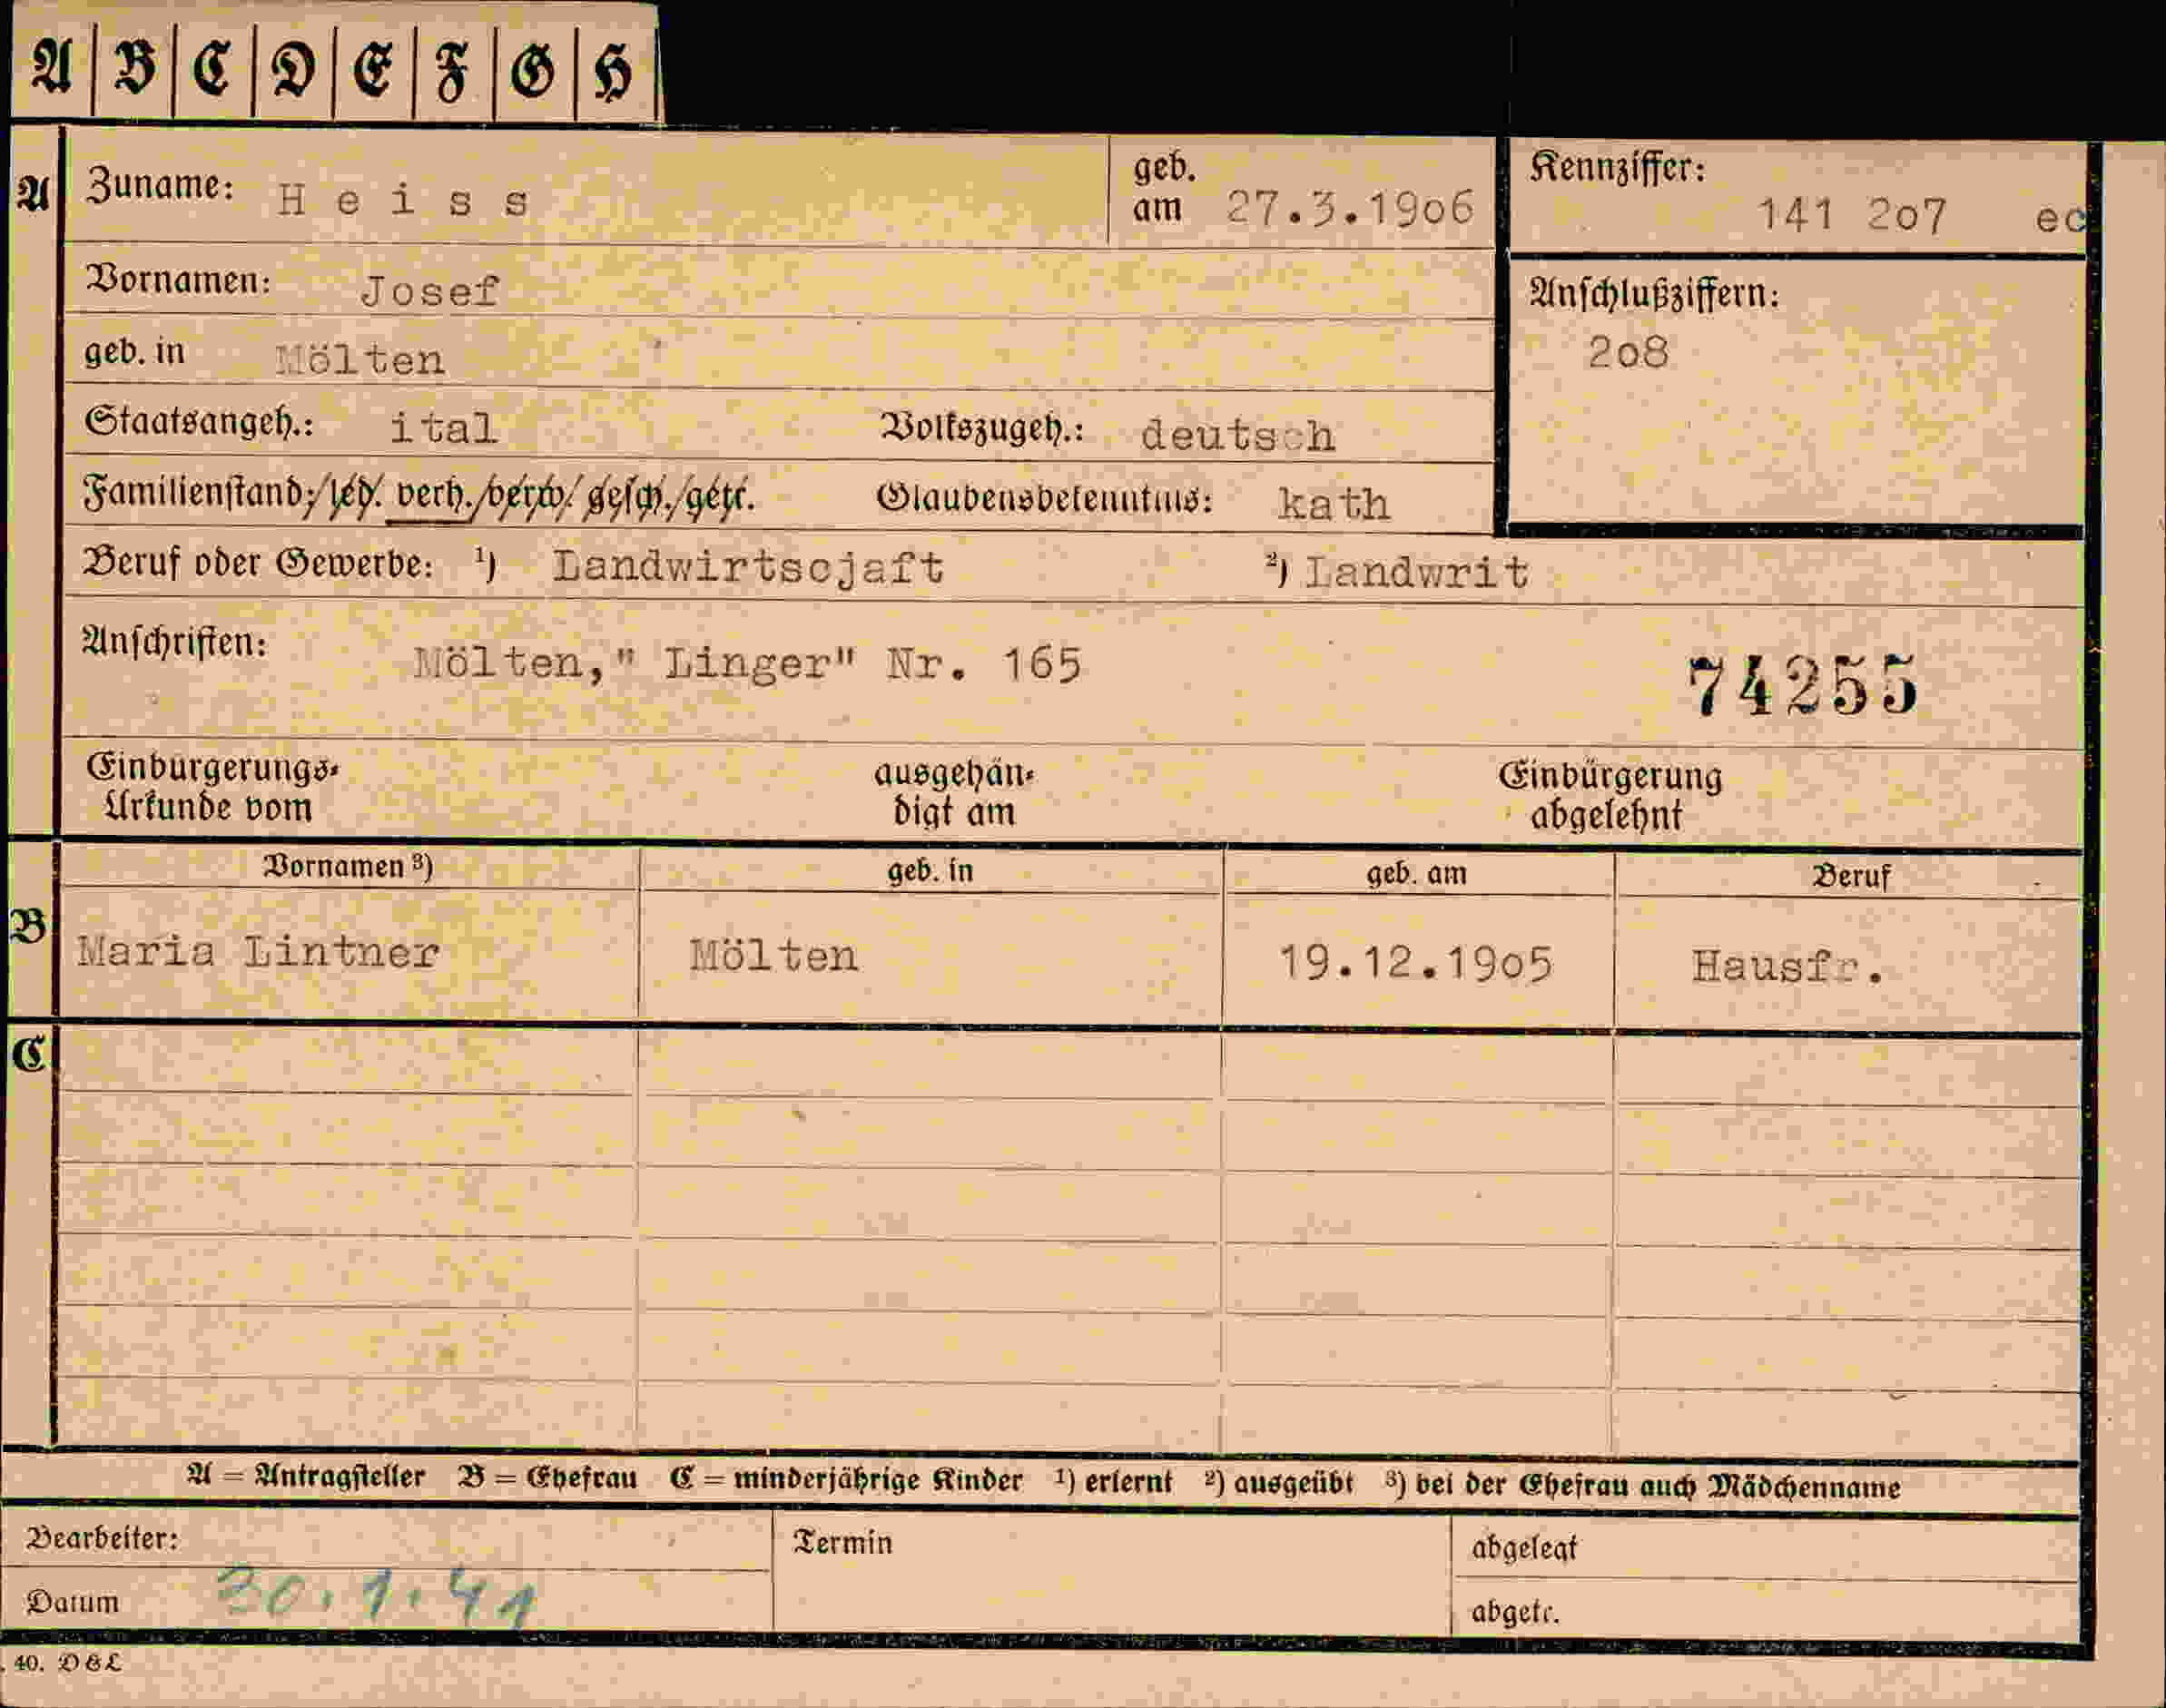 A | B | C | D | E | F | G | H
A Zuname: H e i s s geb. am 27.3.19o6 Kennziffer: 141 2o7 ec
Vornamen: Josef Anschlußziffern: 2o8
geb. in Mölten
Staatsangeh.: ital Volkszugeh.: deutsch
Familienstand: led. verh. verw. gesch. getr. Glaubensbekenntnis: kath
Beruf oder Gewerbe: ¹) Landwirtscjaft ²) Landwrit
Anschriften: Mölten," Linger" Nr. 165 74255
Einbürgerungs- ausgehän- Einbürgerung
Urkunde vom digt am abgelehnt
Vornamen ³) geb. in geb. am Beruf
B Maria Lintner Mölten 19.12.19o5 Hausfr.
C
A = Antragsteller B = Ehefrau C = minderjährige Kinder ¹) erlernt ²) ausgeübt ³) bei der Ehefrau auch Mädchenname
Bearbeiter: Termin abgelegt
Datum 30.1.41 abgetr.
40. DGL